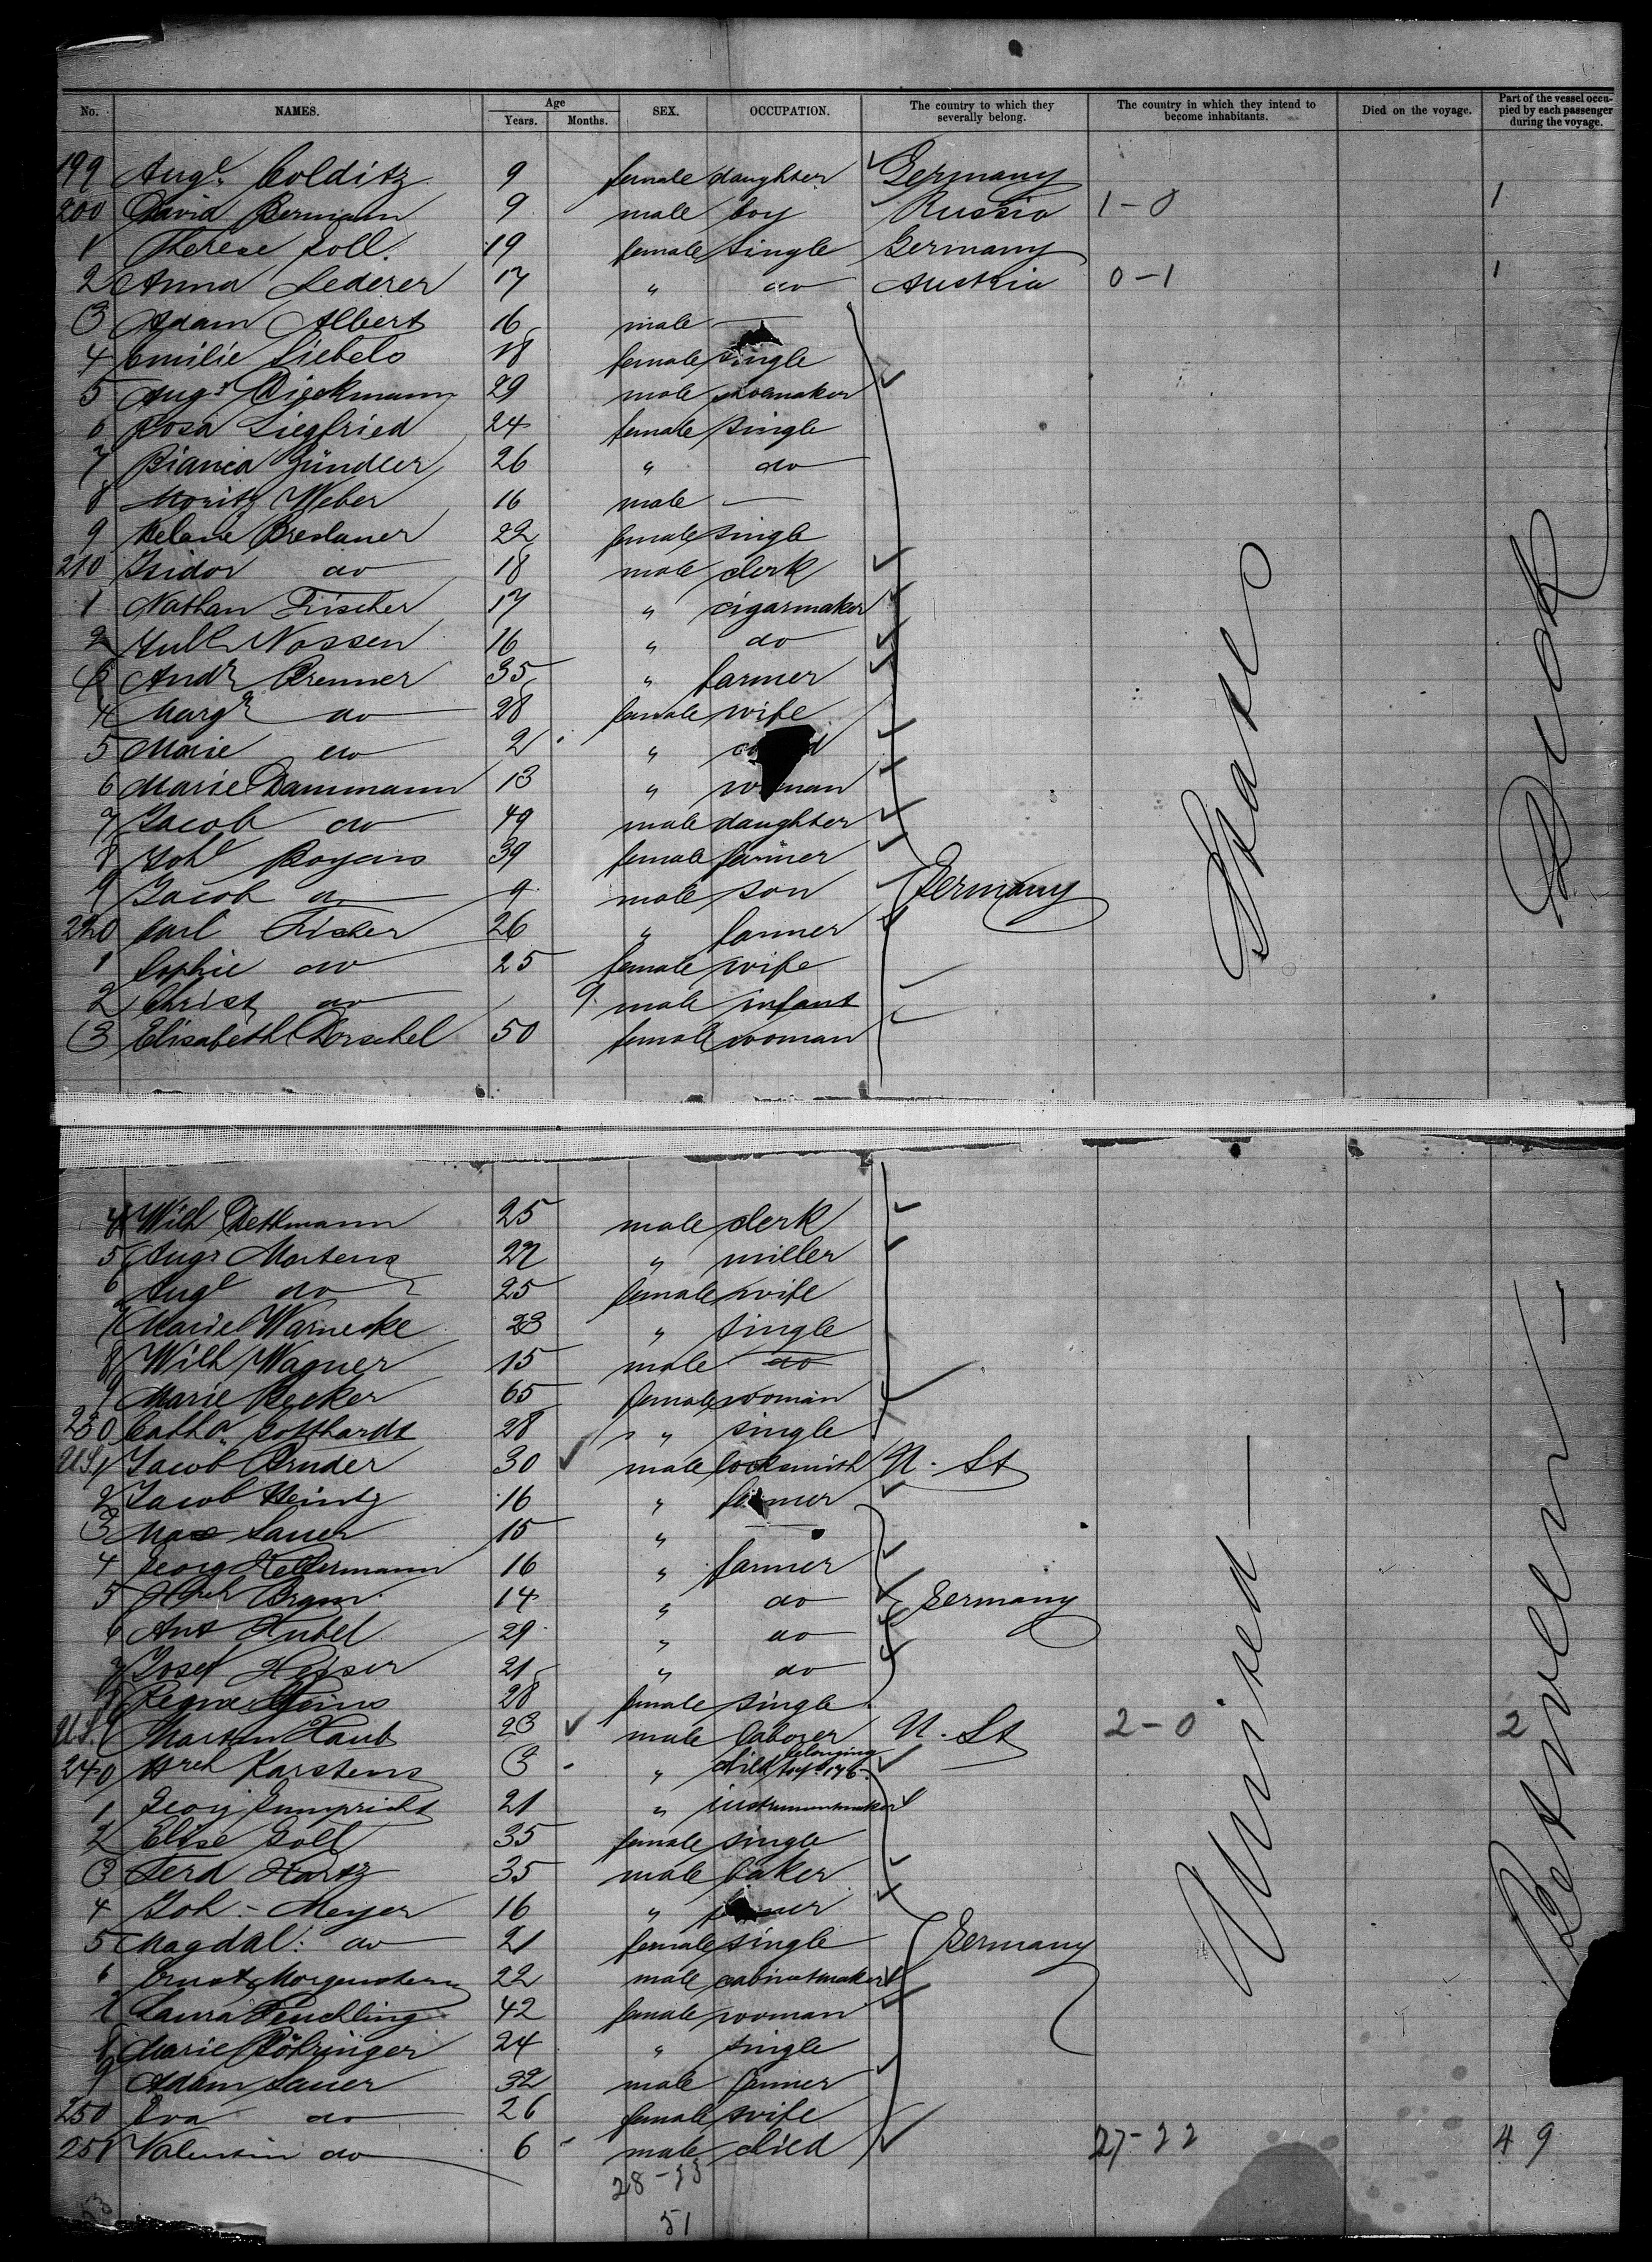 No. NAMES. Age Years. Months. SEX. OCCUPATION. The country to which they severally belong. The country in which they intend to become inhabitants. Died on the voyage. Part of the vessel occupied by each passenger during the voyage.
199 Auge. Colditz 9 female daughter Germany
200 David Bermann 9 male boy Russia 1-0 1
1 Therese Zoll. 19 female single Germany
2 Anna Lederer 17 " do Austria 0-1 1
3 Adam Albert 16 male —
4 Emilie Siebels 18 female single
5 Augst Dieckmann 29 male shoemaker
6 Rosa Siegfried 24 female single
7 Bianca Zündler 26 " do
8 Moritz Weber 16 male —
9 Melanie Breslauer 22 female single
210 Isidor do 18 male clerk
1 Nathan Fischer 17 " cigarmaker
2 Jull Nossen 16 " do
3 Andr Brenner 35 " farmer
4 Margr do 28 female wife
5 Marie do 2 "
6 Marie Dammann 13 " woman
7 Jacob do 49 male daughter
8 Johe Boyens 39 female farmer
9 Jacob do 9 male son Germany
220 Carl Fischer 26 " farmer
1 Sophie do 25 female wife
2 Christ do 9 male infant
3 Elisabeth Dorschel 50 female woman
States
Deck
4 Wilh Dethmann 25 male clerk
5 Augs Martens 27 " miller
6 Auge do 25 female wife
7 Marie Warnecke 23 " single
8 Wilh Wagner 15 male do
9 Marie Becker 65 female woman
230 Catha Gotthardt 28 " single
U.S. 1 Jacob Bruder 30 male locksmith U. St
2 Jacob Heintz 16 " farmer
3 Max Sauer 15 " —
4 Georg Kellermann 16 " farmer
5 Hrch 14 " do Germany
6 Ant 29 " do
7 Josef Heiser 21 " do
8 28 female single
U.S. 9 Martin Haub 23 male laborer U. St 2-0 2
240 Hrch Karstens 3 " child belonging to No 176
1 Georg Gumpricht 21 " instrumentmaker
2 Elise Goll 35 female single
3 Ferd Hartz 35 male baker
4 Joh - Meyer 16 " farmer
5 Magdal: do 21 female single Germany
6 Ernst Morgenstern 22 male cabinetmaker
7 Laura Teuchling 42 female woman
8 Marie Böhringer 24 " single
9 Adam Sauer 32 male farmer
250 Eva do 26 female wife
251 Valentin do 6 male child 27-22 49
51
United —
Between —